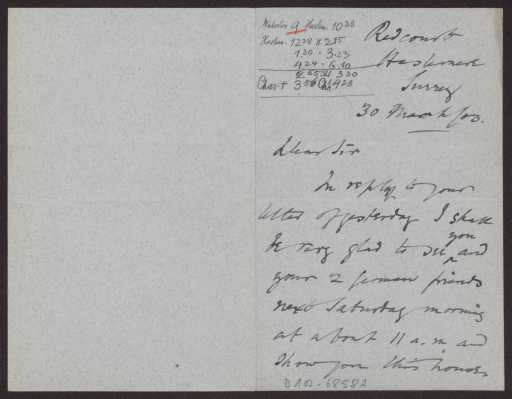 Waterloo 9 Haslem. 10 20
Haslem. 12 28 2 35
1.20 - 3.23
4 24 - 6.10
3 20
Redcourt
Haslemere
Surrey
30 March /03.
Dear Sir
In reply to your
letter of yesterday I shall
be very glad to see you and
your 2 German friends
next Saturday morning
at about 11 a.m and
show you this house.
D 102-6858A